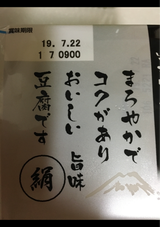 賞味期限
19.7.22
1 7 0900
まろやかで
コクがあり
おいしい
旨味
豆腐です
絹